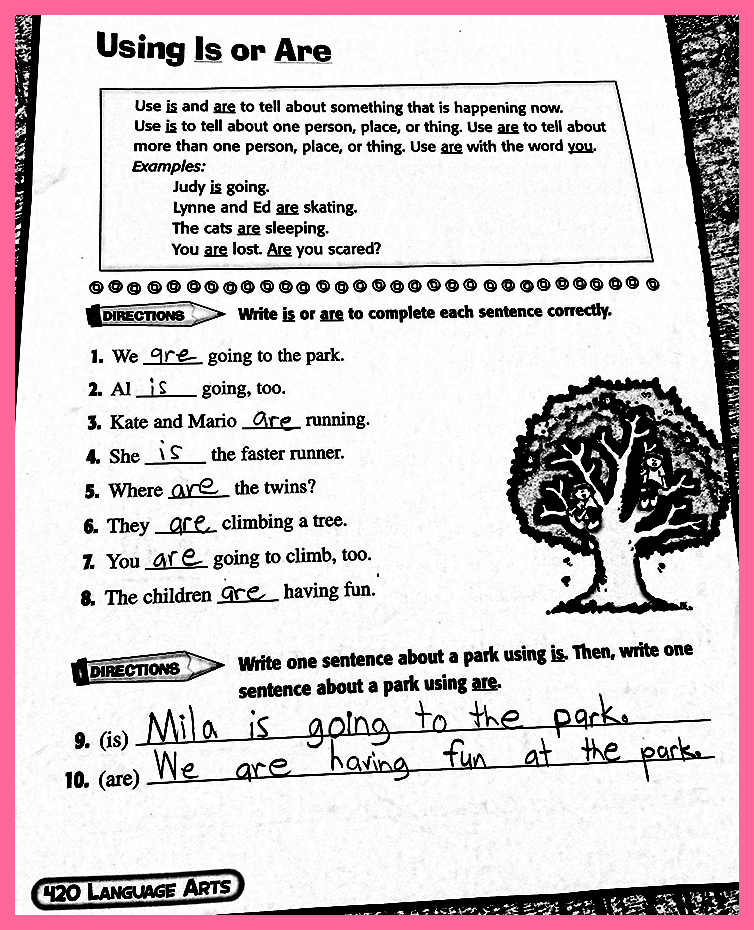 Using Is or Are
Use is and are to tell about something that is happening now.
Use is to tell about one person, place, or thing. Use are to tell about
more than one person, place, or thing. Use are with the word you.
Examples:
Judy is going.
Lynne and Ed are skating.
The cats are sleeping.
You are lost. Are you scared?
DIRECTIONS Write is or are to complete each sentence correctly.
1. We are going to the park.
2. Al is going, too.
3. Kate and Mario are running.
4. She is the faster runner.
5. Where are the twins?
6. They are climbing a tree.
7. You are going to climb, too.
8. The children are having fun.
DIRECTIONS Write one sentence about a park using is. Then, write one
sentence about a park using are.
9. (is) Mila is going to the park.
10. (are) We are having fun at the park.
420 LANGUAGE ARTS